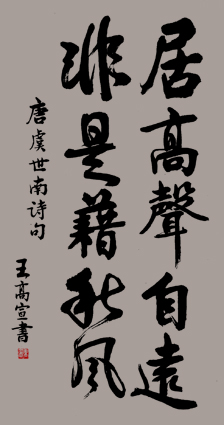 居高聲自遠
非是藉秋風
唐虞世南诗句
王高宣書